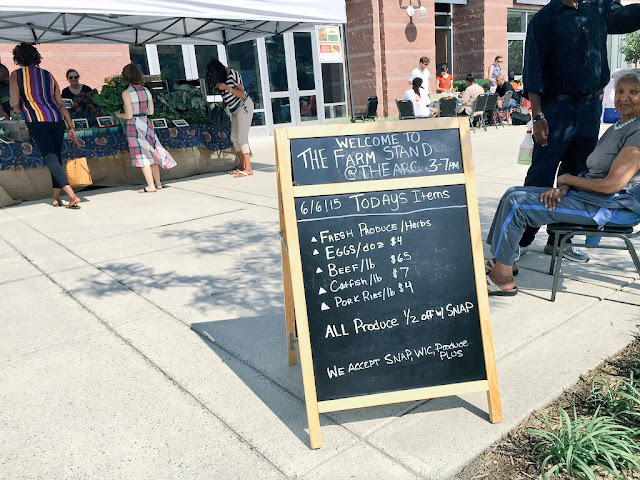 WELCOME TO
THE FARM STAND
@ THE ARC 3-7PM
6/6/15 TODAYS Items
FRESH PRODUCE/HERBS
EGGS/doz $4
BEEF/lb $65
Catfish/lb $7
PORK Ribs/lb $4
ALL Produce 1/2 off w/ SNAP
WE ACCEPT SNAP, WIC, Produce
PLUS